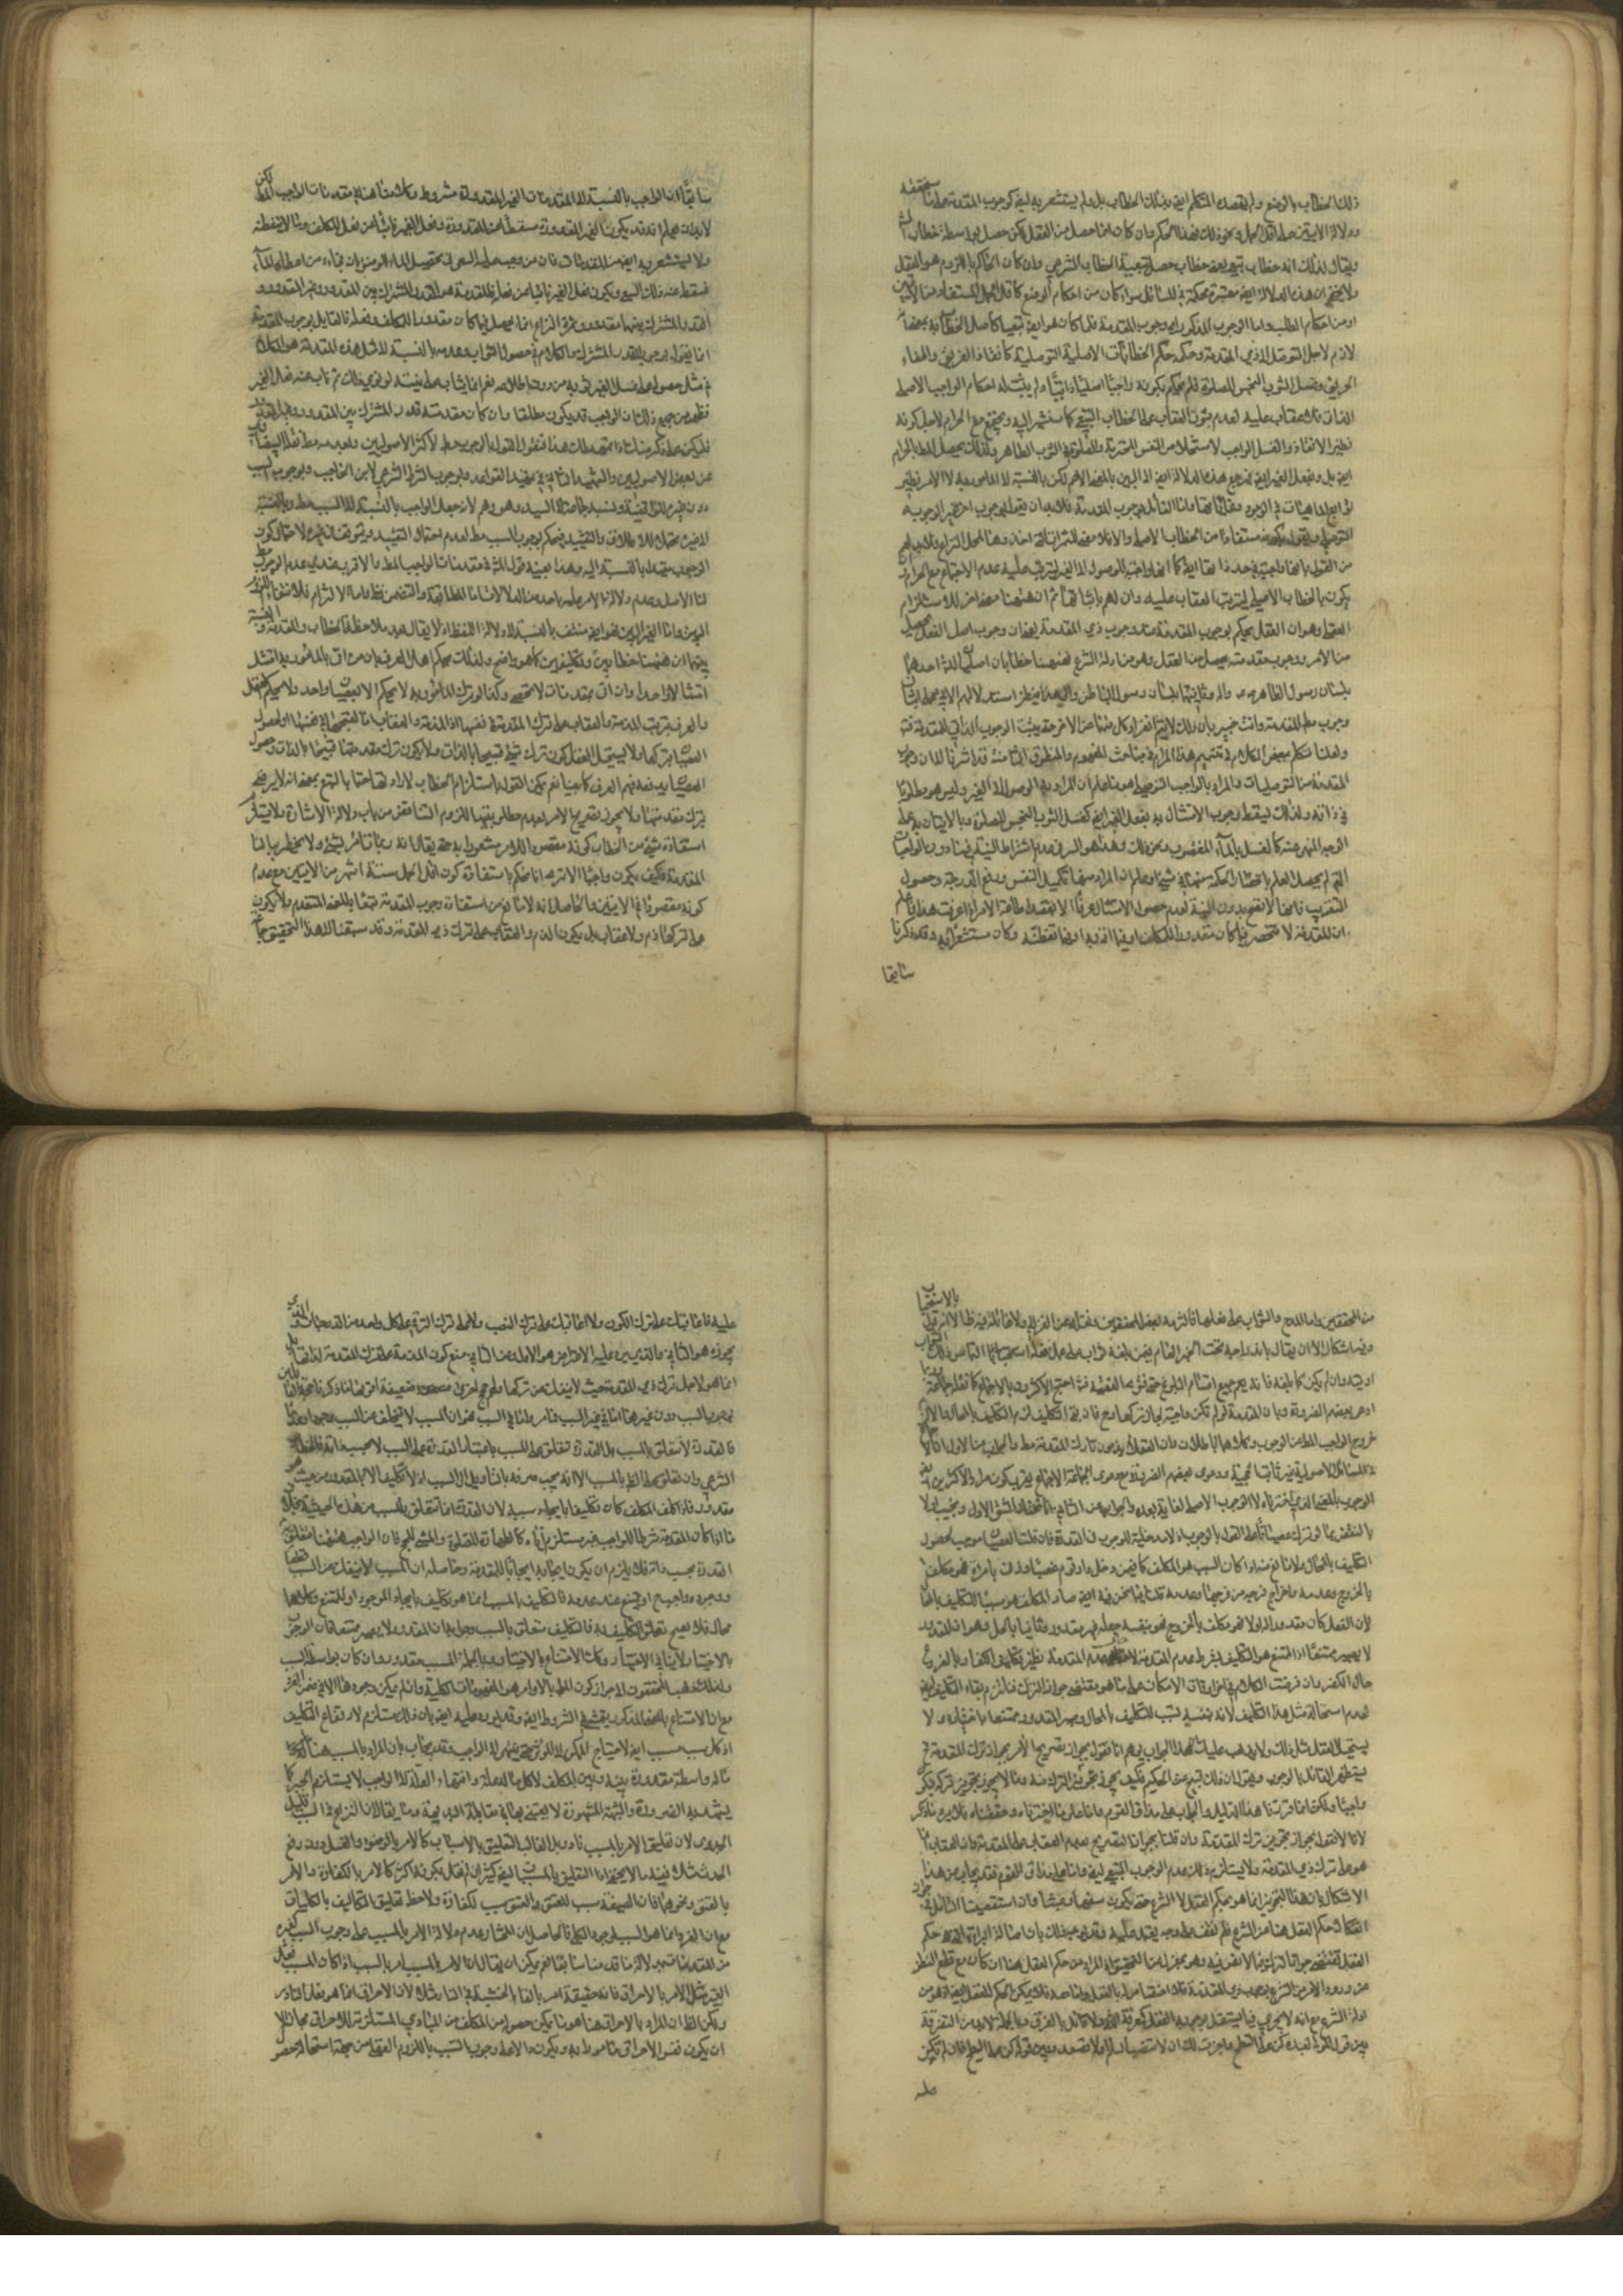 ذلك الخطاب بالوضع ولم يقصده المتكلم ايض بذلك الخطاب بل ولم يستشعر به ايض كوجوب المقدمة على ما سنحققه
ودلالة الايتين على اقل الحمل ونحو ذلك فهذا الحكم وان كان انما حصل من العقل لكن حصل بواسطة خطاب الش
ويقال لذلك انه خطاب تبعي بعد خطاب حصل بتبعية الخطاب الشرعي وان كان الحاكم باللزوم هو العقل
ولا يخفى ان هذه الدلالة ايض معتبرة محكمة في المسائل سواء كان من احكام الوضع كاقل الحمل المستفاد من الايتين
او من احكام الطلب واما الوجوب المذكور اى وجوب المقدمة فلما كان هو ايض تبعيا كاصل الخطاب به بمعنى انه
لازم لاجل التوصل الى ذي المقدمة وحكمه حكم الخطابات الاصلية التوصلية كانقاذ الغريق واطفاء
الحريق وغسل الثوب النجس للصلوة فلم يحكم بكونه واجبا اصليا ذاتيا ولم يثبت له احكام الواجب الاصلي
الذاتى فلا عقاب عليه لعدم ثبوت العقاب على الخطاب التبعي كما سنشير اليه ويجتمع مع الحرام لاجل كونه
نظير الانقاذ والغسل الواجب لاستخلاص النفس المحترمة والصلوة في الثوب الطاهر ولذلك يحصل المط بالحرام
ايض بل وبفعل الغير ايض فمرجع هذه الدلالة ايض الى البين بالمعنى الاعم لكن بالنسبة الى المامور به لا الامر نظير
لوازم الماهيات في الوجود
التوصلي ويقول بكونه مستفادا من الخطاب الاصلي والا فلا معنى للثمرات التي اخذوها لمحل النزاع فلا بد لهم
من القول بانها واجبة في حد ذاتها ايض كما انها واجبة للوصول الى الغير ليترتب عليه عدم الاجتماع مع الحرام وان
يكون بالخطاب الاصلي ليترتب العقاب عليه وان لهم باثباته ثم ان ههنا معنى اخر للاستلزام
العقلي وهو ان العقل يحكم بوجوب المقدمة عند وجوب ذي المقدمة بمعنى ان وجوب اصل الفعل يحصل
من الامر ووجوب مقدمته يحصل من العقل وهو من ادلة الشرع فههنا خطابان اصليان للش احدهما
بلسان رسول الظاهر وثانيهما بلسان رسول الباطن
وجوب مط المقدمة وانت خبير بان ذلك لا يتم
ولعلنا نتكلم ببعض الكلام في تتميم هذا المرام في مباحث المفهوم والمنطوق الثامنة قد اشرنا الى ان وجوب
المقدمة من التوصليات والمراد بالواجب التوصلي هو ما علم ان المراد به الوصول الى الغير وليس هو مطلوبا
في ذاته ولذلك يسقط وجوب الامتثال به بفعل الغير ايض كغسل الثوب النجس للصلوة وبالاتيان به على
الوجه المنهي عنه كالغسل بالماء المغصوب ونحو ذلك وهذا هو السر في عدم اشتراط النية فيها دون الواجبات
التي لم يحصل العلم بانحصار الحكمة منها في شيء وعلم ان المراد منها تكميل النفس ورفع الدرجة وحصول
التقرب فانها لا تصح بدون النية لعدم حصول الامتثال عرفا الا بقصد اطاعة الامر اذا عرفت هذا فاعلم
ان المقدمة لا تنحصر فيما كان مقدورا للمكلف او فيما اتى به او فيما تفطنه وكان مستشعرا به وقد ذكرنا
سابقا
سابقا ان الواجب بالنسبة الى المقدمات الغير المقدورة مشروط وكلامنا هنا في مقدمات الواجب المط لكن
لا بد ان يعلم انه قد يكون الغير المقدورة مسقطا عن المقدورة وفعل الغير نائبا عن فعل المكلف وما لا يتفطنه
ولا يستشعر به ايض من المقدمات فان من وجب عليه السعي في تحصيل الماء للوضوء ان فجاءه من اعطاه الماء
فسقط عنه ذلك السعي ويكون فعل الغير نائبا عن فعله فالمقدمة هو القدر المشترك بين المقدور وغير المقدور و
القدر المشترك بينهما مقدور وثمرة النزاع انما يحصل فيما كان مقدورا للمكلف وفعله فالقائل بوجوب المقدمة
انما يقول بوجوب القدر المشترك والكلام في حصول الثواب وعدمه بالنسبة الى مثل هذه المقدمة هو الكلام
في مثل حصوله على غسل الغير ثوبه من دون اطلاعه نعم انما يثاب على نيته لو نوى ذلك ثم ناب عنه فعل الغير
فظهر من جميع ذلك ان الواجب قد يكون مطلقا وان كان مقدمته قدرا مشتركا بين المقدور وغير المقدور
فليكن على ذكر منك اذا تمهد ذلك فنقول القول بالوجوب مط لاكثر الاصوليين وبعدمه مط نقله البيضاوي
عن بعض الاصوليين والشهيد الثاني في تمهيد القواعد وبوجوب الشرط الشرعي لابن الحاجب وبوجوب السبب
دون غيره للواقفية ونسبه جماعة الى السيد وهو وهم لانه جعل الواجب بالنسبة الى السبب مط وبالنسبة
الى غيره محتملا للاطلاق والتقييد فيحكم بوجوب السبب مط لعدم احتمال التقييد ويتوقف في غيره لاحتمال كون
الوجوب مقيدا بالنسبة اليه وهذا بعينه قول المشهور في مقدمات الواجب المط والاقرب عندي عدم الوجوب مط
لنا الاصل وعدم دلالة الامر عليه باحد من الدلالات اما المطابقة والتضمن فظ واما الالتزام فلانتفاء اللزوم
البين واما الغير البين فهو ايض منتف بالنسبة الى دلالة اللفظ اذ لا يقال بعد ملاحظة الخطاب والمقدمة والنسبة
بينهما ان ههنا خطابين وتكليفين كما هو واضح ولذلك يحكم اهل العرف بان من اتى بالمامور به امتثل
امتثالا واحدا وان اتى بمقدمات لا تحصى وكذا لو ترك المامور به لا يحكم الا بعصيان واحد ولا يحكم العقل
والعرف بترتب المذمة والعقاب على ترك المقدمة
العصيان بتركها ولا يستحيل العقل كون ترك شيء قبيحا بالذات ولا يكون ترك مقدمته قبيحا بالذات وحصول
يمكن القول باستلزام الخطاب لارادتها حتما بالتبع بمعنى انه لا يرضى
بترك مقدمتها ولا يجوز تصريح الامر بعدم مطلوبيتها للزوم التناقض من باب دلالة الاشارة ولا يستلزم
استفادة شيء من الخطاب كونه مقصودا للامر مشعورا به حتى يقال انه ربما نأمر بشيء ولا يخطر ببالنا
المقدمة فكيف يكون واجبا الا ترى انا نحكم باستفادة كون اقل الحمل ستة اشهر من الايتين مع عدم
كونه مقصودا في الايتين والحاصل انه لا مانع من استفادة وجوب المقدمة تبعا بالمعنى المتقدم ولا يكون
على تركها ذم ولا عقاب بل يكون الذم والعقاب على ترك ذي المقدمة وقد سبقنا الى هذا التحقيق جماعة
من المحققين واما المدح والثواب على فعلها فالتزمه بعض المحققين ونقله عن الغزالي ولا غائلة فيه ظاهرا الا انه قول بالاستحباب
وفيه اشكال الا ان يقال باندراجه تحت الخبر العام فيمن بلغه ثواب على عمل ففعله التماس ذلك الثواب
اوتيه وان لم يكن كما بلغه فانه يعم جميع اقسام البلوغ حتى فتوى الفقيه فت احتج الاكثرون بالاجماع كما نقله جماعة
ادعى بعضهم الضرورة وبان المقدمة لو لم تكن واجبة لجاز تركها وح فان بقى التكليف لزم التكليف بالمحال والا لزم
خروج الواجب المط عن الوجوب وكلاهما باطلان وبان العقلاء يذمون تارك المقدمة مط والجواب عن الاول ان الاجماع
في المسائل الاصولية غير ثابت الحجية ودعوى بعضهم الضرورة مع دعوى الجماعة الاجماع يقرب كون مراد الاكثرين ايض
الوجوب بالمعنى الذي اخترناه لا الوجوب الاصلي لغاية بعده والجواب عن الثاني انا نختار الشق الاول ونجيب اولا
بالنقض بما لو تركه عصيانا على القول بالوجوب اذ لا مدخلية للوجوب في القدرة فان قلت العصيان موجب لحصول
التكليف بالمحال ولا مانع منه اذا كان السبب هو المكلف كما فيمن دخل دار قوم غصبا وزنى بامراة فهو مكلف
بالخروج وعدمه واخراج فرجه من فرجها وعدمه قلنا فيما نحن فيه ايض صار المكلف هو سببا للتكليف بالمحال
لان الفعل كان مقدورا له اولا فهو مكلف بالخروج فهو بنفسه جعله غير مقدور وثانيا بالحل وهو ان المقدور
لا يصير ممتنعا اذ الممتنع هو التكليف بشرط عدم المقدمة لا حال عدم المقدمة نظير تكليف الكفار بالفروع
حال الكفر وان فرضت الكلام في اخر اوقات الامكان
لعدم استحالة مثل هذا التكليف لانه بنفسه سبب للتكليف بالمحال وصير المقدور ممتنعا باختياره ولا
يستحيل العقل مثل ذلك ولا يذهب عليك ان هذا الجواب يوهم انا نقول بجواز تصريح الامر بجواز ترك المقدمة ح
فيستظهر القائل بالوجوب ويقول ان ذلك قبيح عن الحكيم فكيف يجوز تجويز الترك منه وما لا يجوز تجويز تركه فيكون
واجبا ولكنا انما قررنا هذا الدليل والجواب على مذاق القوم واما على ما اخترناه وحققناه فلا يرد ما ذكر
لانا لا نقول بجواز تجويز ترك المقدمة وان قلنا بجواز التصريح بعدم العقاب على المقدمة وان العقاب انما
هو على ترك ذي المقدمة ولا يستلزم ذلك عدم الوجوب التبعي ايض واما على مذاق القوم فقد يجاب عن هذا
الاشكال بان هذا التجويز انما هو بحكم العقل لا الشرع حتى يكون سفها وعبثا وان استقصيت التامل في جواز
انفكاك حكم العقل هنا عن الشرع فلم نقف على وجه يعتمد عليه وقد يوجه ذلك بان اصالة البراءة التي هو حكم
العقل يقتضي جواز الترك فيما لا نص فيه وهو بمعزل عن التحقيق اذ المراد من حكم العقل هنا ان كان مع قطع النظر
عن ورود الامر من الشرع بوجوب ذي المقدمة فلا اختصاص له بالمقدمة
ادلة الشرع مع انه لا يجري فيما يستقل بوجوبه العقل كمعرفة الله ولا قائل بالفرق وبالجملة لا بد من التفرقة
بين قول المولى لعبده كن على السطح وجوزت لك ان لا تنصب السلم ولا تصعد وبين قوله كن على السطح فان لم تكن
عليه
عليه فاعاقبك على ترك الكون ولا اعاقبك على ترك النصب ولا على ترك التدرج على كل واحد من الدرجات و الذي
يجوزه هو الثاني والذي يرد عليه الاعتراض هو الاول وعن الثالث منع كون المذمة على ترك المقدمة لذاتها بل
انما هو لاجل ترك ذي المقدمة حيث لا ينفك عن تركها ولهم حجج اخرى ضعيفة اقواها ما ذكرنا حجة القائلين
بوجوب السبب دون غيره اما في غير السبب فما مر واما في السبب فهو ان المسبب لا يتخلف عن السبب وجودا وعدما
فالقدرة لا تتعلق بالمسبب بل القدرة تتعلق على المسبب باعتبار القدرة على السبب لا بحسب ذاته فالخطاب
الشرعي وان تعلق على الظ بالمسبب الا انه يجب صرفه بالتاويل الى السبب اذ لا تكليف الا بالمقدور من حيث هو
مقدور فاذا كلف المكلف كان تكليفا بايجاد سببه لان القدرة انما تتعلق بالسبب من هذه الحيثية بخلاف
ما اذا كان المقدمة شرطا للواجب غير مستلزم اياه كالطهارة للصلوة والمشي للحج فان الواجب ههنا يتعلق به
القدرة بحسب ذاته فلا يلزم ان يكون ايجابه ايجابا للمقدمة وحاصله ان المسبب لا ينفك عن السبب فعند
وجوده واجب او ممتنع عند عدمه فالتكليف بالمسبب انما هو تكليف بايجاد الموجود او الممتنع وكلاهما
محال فلا يصح تعلق التكليف به فالتكليف متعلق بالسبب وجوابه ان المقدور لا يصير ممتنعا فان الوجوب
بالاختيار لا ينافي الاختيار وكك الامتناع بالاختيار وبالجملة المسبب مقدور وان كان بواسطة السبب
ولذلك ذهب المحققون الى جواز كون المط بالاوامر هو المفهومات الكلية وان لم يمكن وجودها الا في ضمن الفرد
مع ان الامتناع بالمعنى المذكور يتمشى في الشروط ايض وقد يرد عليه ايض بان ذلك مستلزم لارتفاع التكليف
اذ كل سبب مسبب ايض لاحتياج الممكن الى المؤثر حتى ينتهي الى الواجب وقد يجاب بان المراد بالمسبب هنا
ماله واسطة مقدورة بينه وبين المكلف لا كل ما له علة وانتهاء العلة الى الواجب لا يستلزم الجبر كما
يشهد به الضرورة والشبهة المشهورة لا يعتنى بها في مقابلة البديهة وما يقال ان النزاع في السبب قليل
الجدوى لان تعليق الامر بالمسبب نادر بل الغالب التعليق بالاسباب كالامر بالوضوء والغسل دون رفع
الحدث ضعيف لا يخفى اذ التعليق بالمسببات ايض كثير ان لم نقل بكونه اكثر كالامر بالكفارة والامر
بالعتق ونحوهما فان الصيغة سبب للعتق والعتق سبب للكفارة ولاحظ تعليق التكاليف بالكليات
مع ان الفرد انما هو السبب لوجود الكلي فالحاصل ان المختار عدم دلالة الامر بالمسبب على وجوب السبب كغيره
من المقدمات بدلالة ما قدمناه سابقا نعم يمكن ان يقال ان الامر بالمسبب امر بالسبب اذا كان المسبب فعل
الغير مثل الامر بالاحراق فانه حقيقة امر بالقاء الخشبة في النار مثلا لان الاحراق انما هو فعل النار
ولكن الظ ان المراد بالاحراق هنا هو ما يمكن حصوله من المكلف من المبادي المستلزمة للاحراق مجازا لا
ان يكون نفس الاحراق مامورا به ويكون دالا على وجوب السبب باللزوم العقلي من جهة استحالة حصر